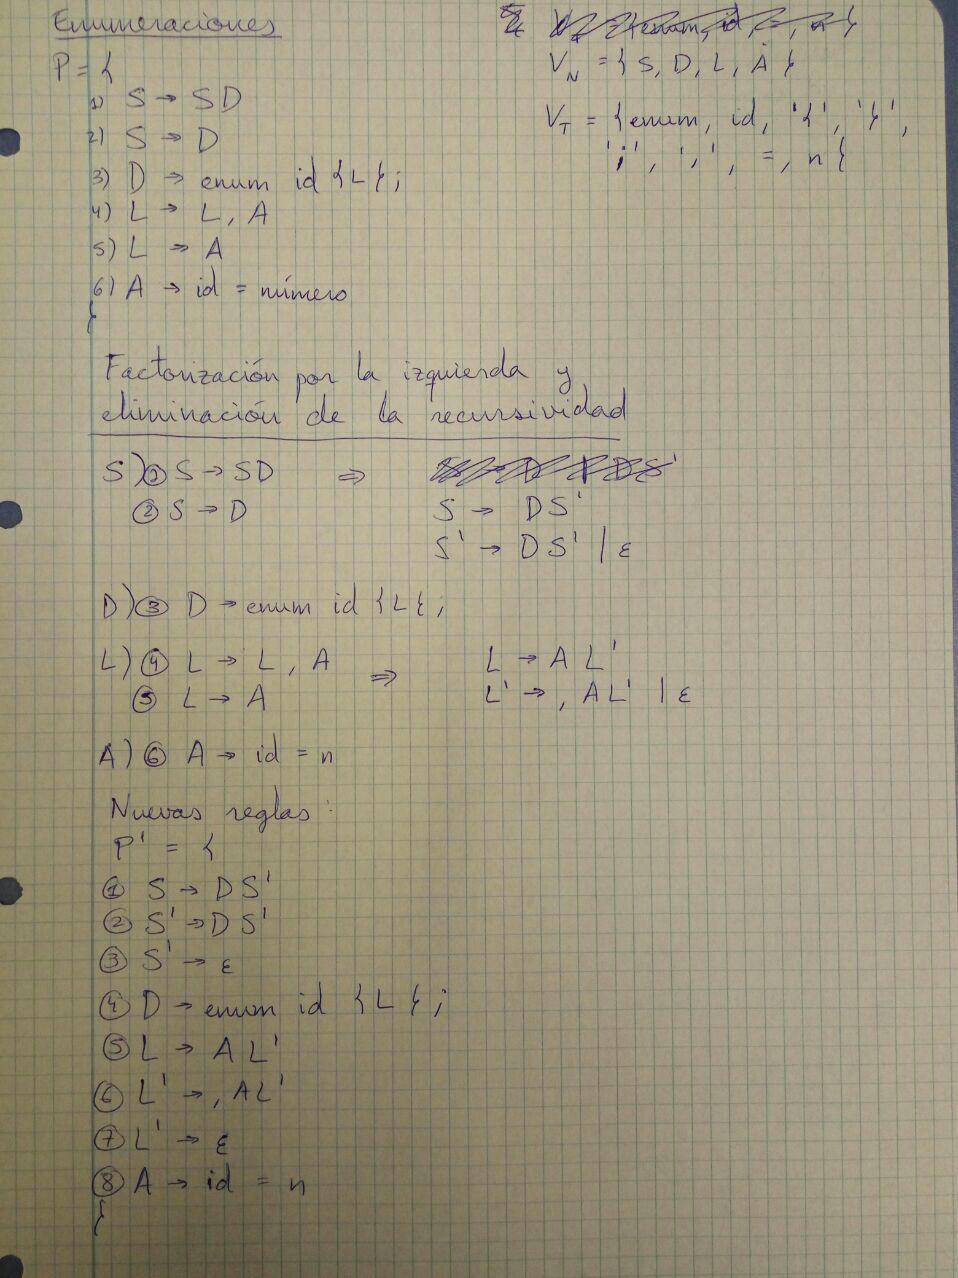 Enumeraciones
P = {
1) S → SD
2) S → D
3) D → enum id {L};
4) L → L, A
5) L → A
6) A → id = número
}
V_N = {S, D, L, A}
V_T = {enum, id, '{', '}',
';', ',', =, n}
Factorización por la izquierda y
eliminación de la recursividad
S) ① S → SD ⇒
② S → D
S → DS'
S' → DS' | ε
D) ③ D → enum id {L};
L) ④ L → L, A ⇒ L → A L'
⑤ L → A L' → , AL' | ε
A) ⑥ A → id = n
Nuevas reglas:
P' = {
① S → DS'
② S' → DS'
③ S' → ε
④ D → enum id {L};
⑤ L → AL'
⑥ L' → , AL'
⑦ L' → ε
⑧ A → id = n
}